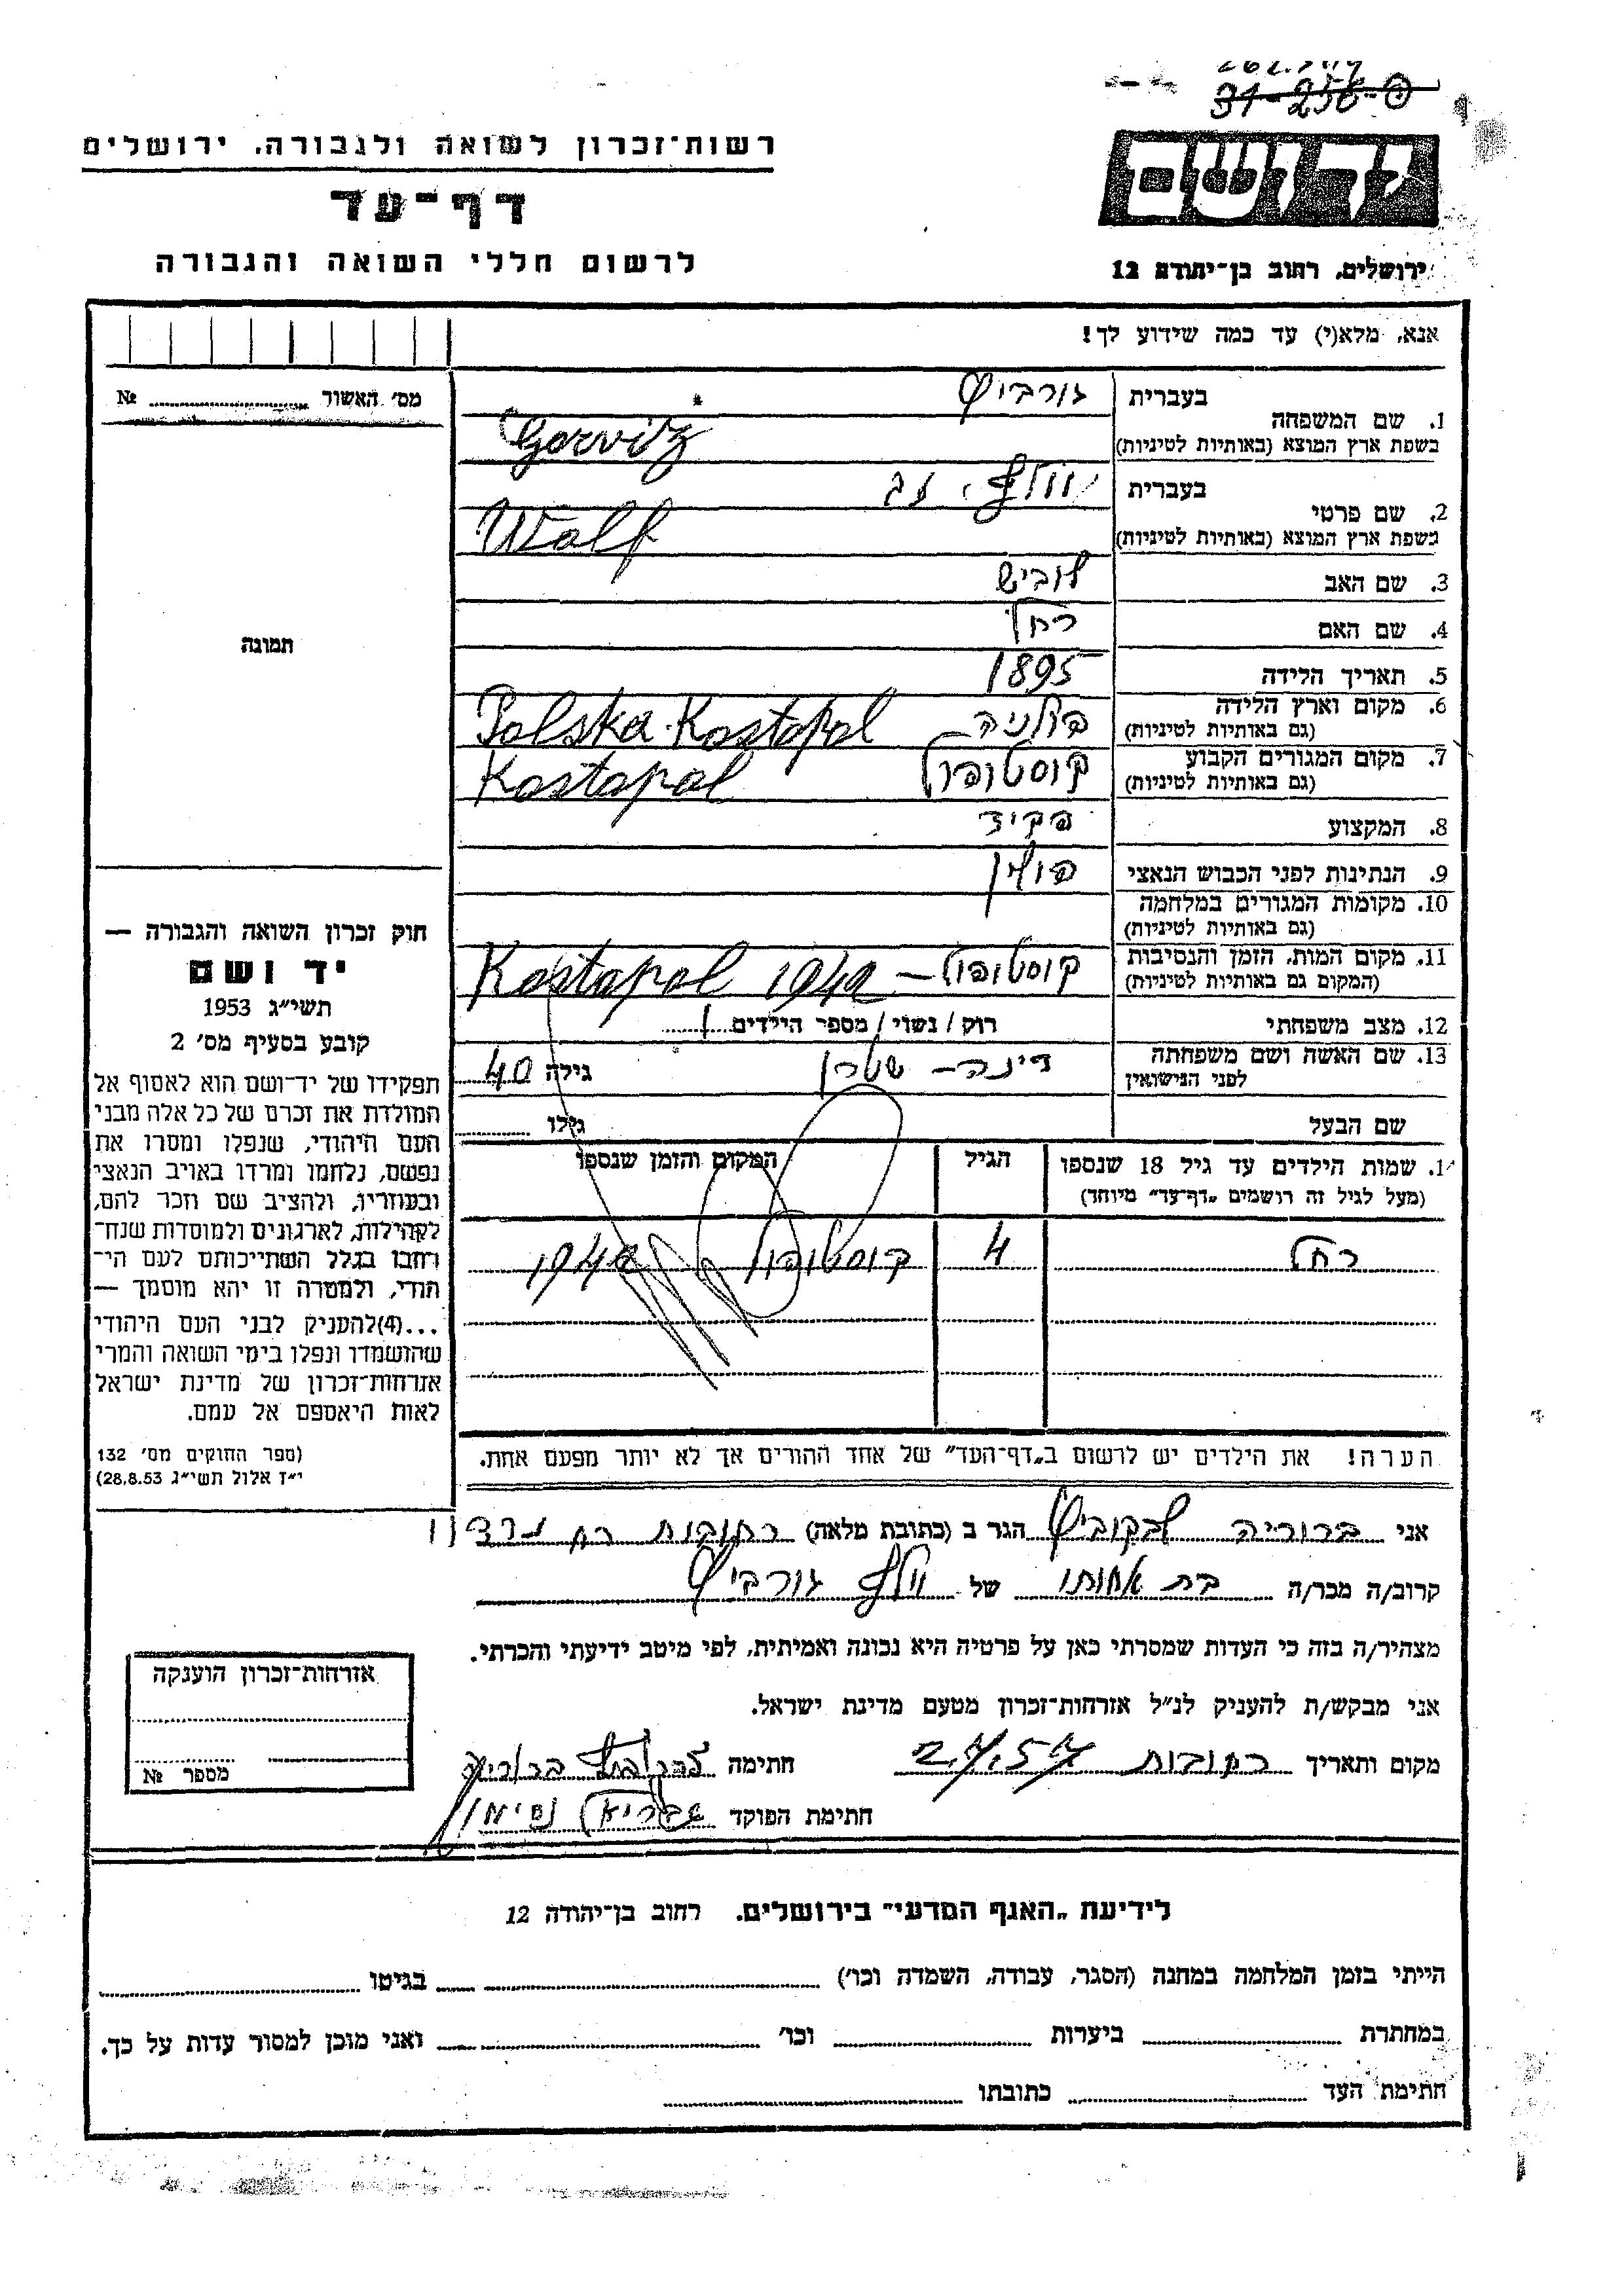 31-256-0
רשות־זכרון לשואה ולגבורה, ירושלים
דף־עד
לרשום חללי השואה והגבורה
ידושם
ירושלים, רחוב בן־יהודה 12
אנא, מלא(י) עד כמה שידוע לך!
מס׳ האשור № 
1. שם המשפחה בעברית גורביץ
בשפת ארץ המוצא (באותיות לטיניות) Gorvitz
2. שם פרטי בעברית וולף, זב
בשפת ארץ המוצא (באותיות לטיניות) Wolf
3. שם האב לוביש
4. שם האם רחל
5. תאריך הלידה 1895
6. מקום וארץ הלידה (גם באותיות לטיניות) פולניה Polska-Kostopol
7. מקום המגורים הקבוע (גם באותיות לטיניות) קוסטופול Kostopol
8. המקצוע פקיד
9. הנתינות לפני הכבוש הנאצי פולין
10. מקומות המגורים במלחמה (גם באותיות לטיניות)
11. מקום המות, הזמן והנסיבות (המקום גם באותיות לטיניות) קוסטופול – Kostopol 1942
12. מצב משפחתי רוק / נשוי / מספר הילדים 1
13. שם האשה ושם משפחתה לפני הנישואין דינה – שטרן גילה 40
שם הבעל גילו
תמונה
1. שמות הילדים עד גיל 18 שנספו (מעל לגיל זה רושמים „דף־עד״ מיוחד) הגיל המקום והזמן שנספו
רחל 4 קוסטופול 1942
חוק זכרון השואה והגבורה —
יד ושם
תשי״ג 1953
קובע בסעיף מס׳ 2
תפקידו של יד־ושם הוא לאסוף אל
המולדת את זכרם של כל אלה מבני
העם היהודי, שנפלו ומסרו את
נפשם, נלחמו ומרדו באויב הנאצי
ובעוזריו, ולהציב שם וזכר להם,
לקהילות, לארגונים ולמוסדות שנח־
רבו בגלל השתייכותם לעם הי־
הודי, ולמטרה זו יהא מוסמך —
...(4) להעניק לבני העם היהודי
שהושמדו ונפלו בימי השואה והמרי
אזרחות־זכרון של מדינת ישראל
לאות היאספם אל עמם.
(ספר החוקים מס׳ 132
י״ז אלול תשי״ג 28.8.53)
הערה! את הילדים יש לרשום ב„דף־העד״ של אחד ההורים אך לא יותר מפעם אחת.
אני ברוריה הגר ב (כתובת מלאה) רחובות רח
קרוב/ה מכר/ה בת אחותו של וולף גורביץ
מצהיר/ה בזה כי העדות שמסרתי כאן על פרטיה היא נכונה ואמיתית, לפי מיטב ידיעתי והכרתי.
אני מבקש/ת להעניק לנ״ל אזרחות־זכרון מטעם מדינת ישראל.
מקום ותאריך רחובות חתימה ברוריה
חתימת הפוקד
אזרחות־זכרון הוענקה
מספר №
לידיעת „האגף המדעי״ בירושלים, רחוב בן־יהודה 12
הייתי בזמן המלחמה במחנה (הסגר, עבודה, השמדה וכו׳) בגיטו
במחתרת ביערות וכו׳ ואני מוכן למסור עדות על כך.
חתימת העד כתובתו